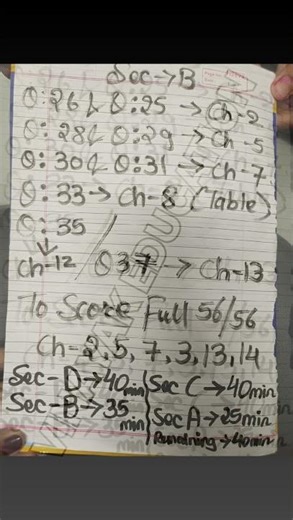 Sec → B
Q:26 & Q:25 → Ch-2
Q:28 & Q:29 → Ch-5
Q:30 & Q:31 → Ch-7
Q:33 → Ch-8 (Table)
Q:35
Ch-12 / Q 37 → Ch-13
To Score Full 56/56
Ch-2,5,7,3,13,14
Sec-D → 40min
Sec-B → 35 min
Sec C → 40min
Sec A → 25min
Remaining → 40min